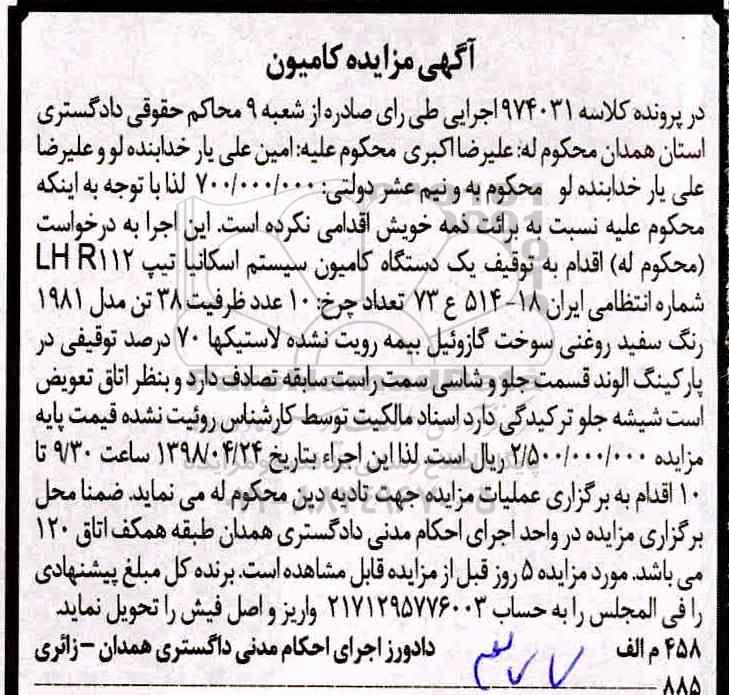 آگهی مزایده کامیون
در پرونده کلاسه ۹۷۴۰۳۱ اجرایی طی رای صادره از شعبه ۹ محاکم حقوقی دادگستری
استان همدان محکوم له: علیرضا اکبری محکوم علیه: امین علی یار خدابنده لو و علیرضا
علی یار خدابنده لو محکوم به و نیم عشر دولتی: ۷۰۰/۰۰۰/۰۰۰ لذا با توجه به اینکه
محکوم علیه نسبت به برائت ذمه خویش اقدامی نکرده است. این اجرا به درخواست
(محکوم له) اقدام به توقیف یک دستگاه کامیون سیستم اسکانیا تیپ LH R۱۱۲
شماره انتظامی ایران ۱۸-۵۱۴ ع ۷۳ تعداد چرخ: ۱۰ عدد ظرفیت ۳۸ تن مدل ۱۹۸۱
رنگ سفید روغنی سوخت گازوئیل بیمه رویت نشده لاستیکها ۷۰ درصد توقیفی در
پارکینگ الوند قسمت جلو و شاسی سمت راست سابقه تصادف دارد و بنظر اتاق تعویض
است شیشه جلو ترکیدگی دارد اسناد مالکیت توسط کارشناس روئیت نشده قیمت پایه
مزایده ۲/۵۰۰/۰۰۰/۰۰۰ ریال است. لذا این اجراء بتاریخ ۱۳۹۸/۰۴/۲۴ ساعت ۹/۳۰ تا
۱۰ اقدام به برگزاری عملیات مزایده جهت تادیه دین محکوم له می نماید. ضمنا محل
برگزاری مزایده در واحد اجرای احکام مدنی دادگستری همدان طبقه همکف اتاق ۱۲۰
می باشد. مورد مزایده ۵ روز قبل از مزایده قابل مشاهده است. برنده کل مبلغ پیشنهادی
را فی المجلس را به حساب ۲۱۷۱۲۹۵۷۷۶۰۰۳ واریز و اصل فیش را تحویل نماید.
۴۵۸ م الف دادورز اجرای احکام مدنی داگستری همدان - زائری
۸۸۵